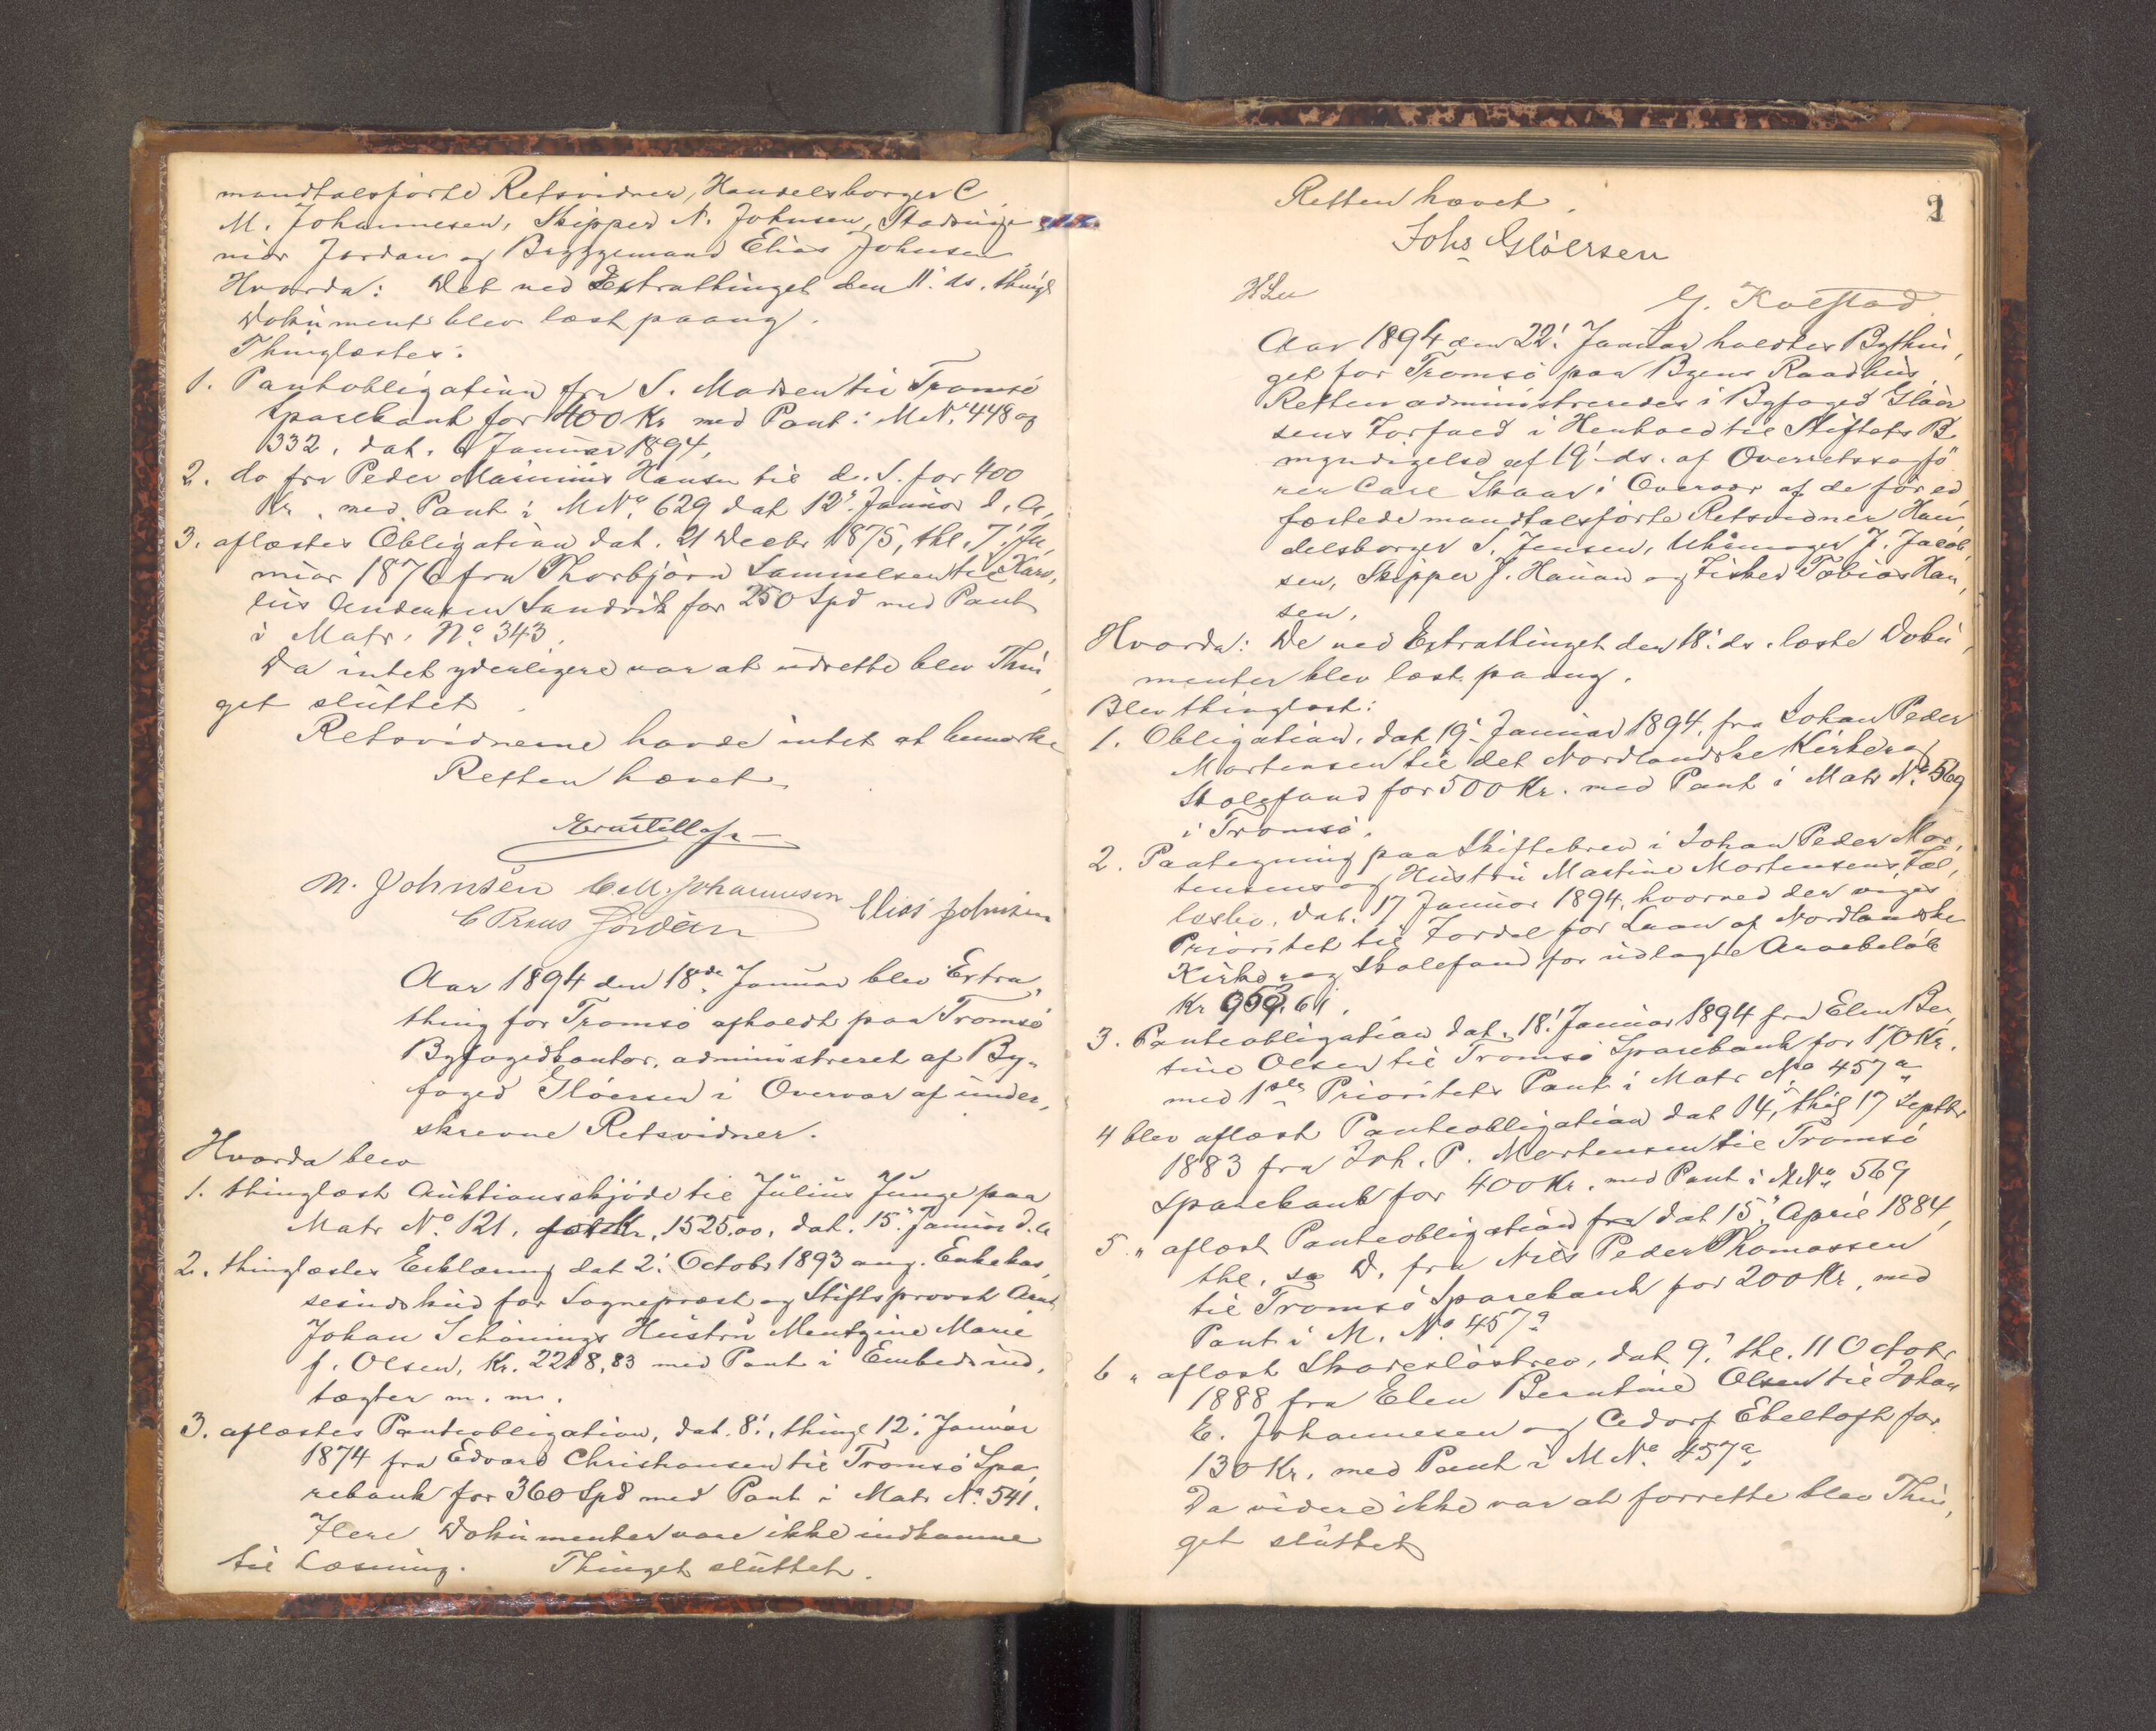 mandtalsførte Retsvidner, Handelsborger C.
M. Johannesen, Skipper N. Johnsen, Stadsinge
niør Jordan og Bryggemand Elias Johnsen
Hvorda: Det ved Extrathinget den 11' ds. thingl
Dokument blev læst paany.
Thinglæstes:
1. Pantobligation fra S. Madsen til Tromsø
Sparebank for 1400 Kr. med Pant i M.N.º 448 og
332, dat. 6 Januar 1894,
2. do fra Peder Maximus Hansen til d. S. for 400
Kr. med Pant i M.Nº 629 dat 12' Januar d. A,
3. aflæstes Obligation dat. 21 Decbr 1875, thl. 7' Ja,
nuar 1876 fra Thorbjørn Samuelsen til Karo,
lius Andersen Sandvik for 250 Spd med Pant
i Matr. Nº 343.
Da intet yderligere var at udrette blev Thin,
get sluttet.
Retsvidnerne havde intet at bemærke
Retten hævet.
N. Johnsen C. M. Johannesen Elias Johnsen
C Jordan
Aar 1894 den 18de Januar blev Extra,
thing for Tromsø afholdt paa Tromsø
Byfogedkontor, administreret af By„
foged Gløersen i Overvær af under,
skrevne Retsvidner.
Hvorda blev
1. thinglæst Auktionsskjøde til Julius Junge paa
Matr Nº 121. for Kr. 1525.00, dat. 15' Januar d. A
2. thinglæstes Erklæring dat 2' Octobr 1893 ang. Enkekas,
seindskud for Sogneprest og Stiftsprovst Arnt
Johan Schønings Hustru Mentzine Marie
f. Olsen, Kr. 2218,83 med Pant i Embedsind,
tægter m. m.
3. aflæstes Panteobligation, dat. 8', thingl 12' Januar
1874 fra Edvard Christiansen til Tromsø Spa,
rebank for 360 Spd med Pant i Matr Nº 541.
Flere Dokumenter vare ikke indkomne
til Læsning. Thinget sluttet.
Retten hævet.
Johs Gløersen
G. Kolstad
Aar 1894 den 22' Januar holdtes Bythin,
get for Tromsø paa Byens Raadhus.
Retten administreredes i Byfoged Gløer
sens Forfald i Henhold til Stiftets Be
myndigelse af 19' ds. af Overretssagfø
rer Carl Skaar i Overvær af de før ed,
fæstede mandtalsførte Retsvidner Han,
delsborger S. Jensen, Uhrmager J. Jacob,
sen, Skipper J. Hauan og Fisker Tobias Han,
sen.
Hvorda: De ved Extrathinget den 18' ds. læste Doku,
menter blev læst paany.
Blev thinglæst:
1. Obligation, dat 19' Januar 1894, fra Johan Peder
Mortensen til det Nordlandske Kirke og
Skolefond for 500 Kr. med Pant i Matr Nº 569
i Tromsø.
2. Paategning paa Skiftebrev i Johan Peder Mor,
tensens og Hustru Martine Mortensens Fæl,
lesbo, dat. 17 Januar 1894, hvorved der viges
Prioritet til Fordel for Laan af Nordlandske
Kirke og Skolefond for udlagte Arvebeløb
Kr 953,61.
3. Panteobligation dat. 18' Januar 1894 fra Elen Ber,
tine Olsen til Tromsø Sparebank for 170 Kr.
med 1ste Prioritets Pant i Matr Nº 457a
4 blev aflæst Panteobligation dat 14', thgl 17 Septbr
1883 fra Joh. P. Mortensen til Tromsø
Sparebank for 400 Kr. med Pant i MNº 569
5 „ aflæst Panteobligation fra dat 15' April 1884,
thl. s. D. fra Nils Peder Thomassen
til Tromsø Sparebank for 200 Kr, med
Pant i M. Nº 457a
6 „ aflæst Skadesløsbrev, dat 9', thl. 11 Octobr
1888 fra Elen Berntine Olsen til Johan
E. Johannesen og Cedorf Ebeltoft for
130 Kr. med Pant i M Nº 457a
Da videre ikke var at forrette blev Thin,
get sluttet